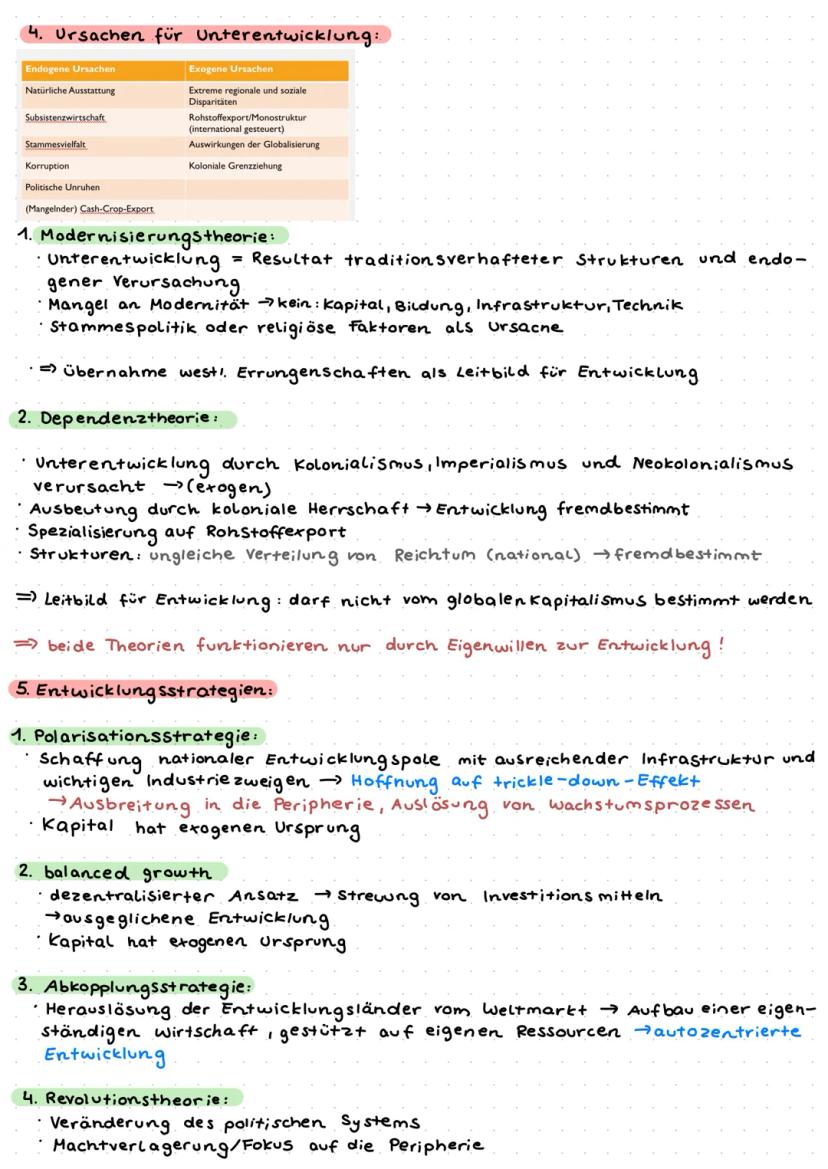 4. Ursachen für Unterentwicklung:
Endogene Ursachen Exogene Ursachen
Natürliche Ausstattung Extreme regionale und soziale
Disparitäten
Subsistenzwirtschaft Rohstoffexport/Monostruktur
(international gesteuert)
Stammesvielfalt Auswirkungen der Globalisierung
Korruption Koloniale Grenzziehung
Politische Unruhen
(Mangelnder) Cash-Crop-Export
1. Modernisierungstheorie:
· Unterentwicklung = Resultat traditionsverhafteter Strukturen und endo-
gener Verursachung
· Mangel an Modernität → kein: Kapital, Bildung, Infrastruktur, Technik
· Stammespolitik oder religiöse Faktoren als Ursache
· ⇒ Übernahme westl. Errungenschaften als Leitbild für Entwicklung
2. Dependenztheorie:
· Unterentwicklung durch Kolonialismus, Imperialismus und Neokolonialismus
verursacht → (exogen)
· Ausbeutung durch koloniale Herrschaft → Entwicklung fremdbestimmt
· Spezialisierung auf Rohstoffexport
· Strukturen: ungleiche Verteilung von Reichtum (national) → fremdbestimmt
⇒ Leitbild für Entwicklung: darf nicht vom globalen Kapitalismus bestimmt werden
⇒ beide Theorien funktionieren nur durch Eigenwillen zur Entwicklung!
5. Entwicklungsstrategien:
1. Polarisationsstrategie:
· Schaffung nationaler Entwicklungspole mit ausreichender Infrastruktur und
wichtigen Industriezweigen → Hoffnung auf trickle-down-Effekt
→ Ausbreitung in die Peripherie, Auslösung von Wachstumsprozessen
· Kapital hat exogenen Ursprung
2. balanced growth
· dezentralisierter Ansatz → Streuung von Investitionsmitteln
→ ausgeglichene Entwicklung
· Kapital hat exogenen Ursprung
3. Abkopplungsstrategie:
· Herauslösung der Entwicklungsländer vom Weltmarkt → Aufbau einer eigen-
ständigen Wirtschaft, gestützt auf eigenen Ressourcen → autozentrierte
Entwicklung
4. Revolutionstheorie:
· Veränderung des politischen Systems
· Machtverlagerung/Fokus auf die Peripherie